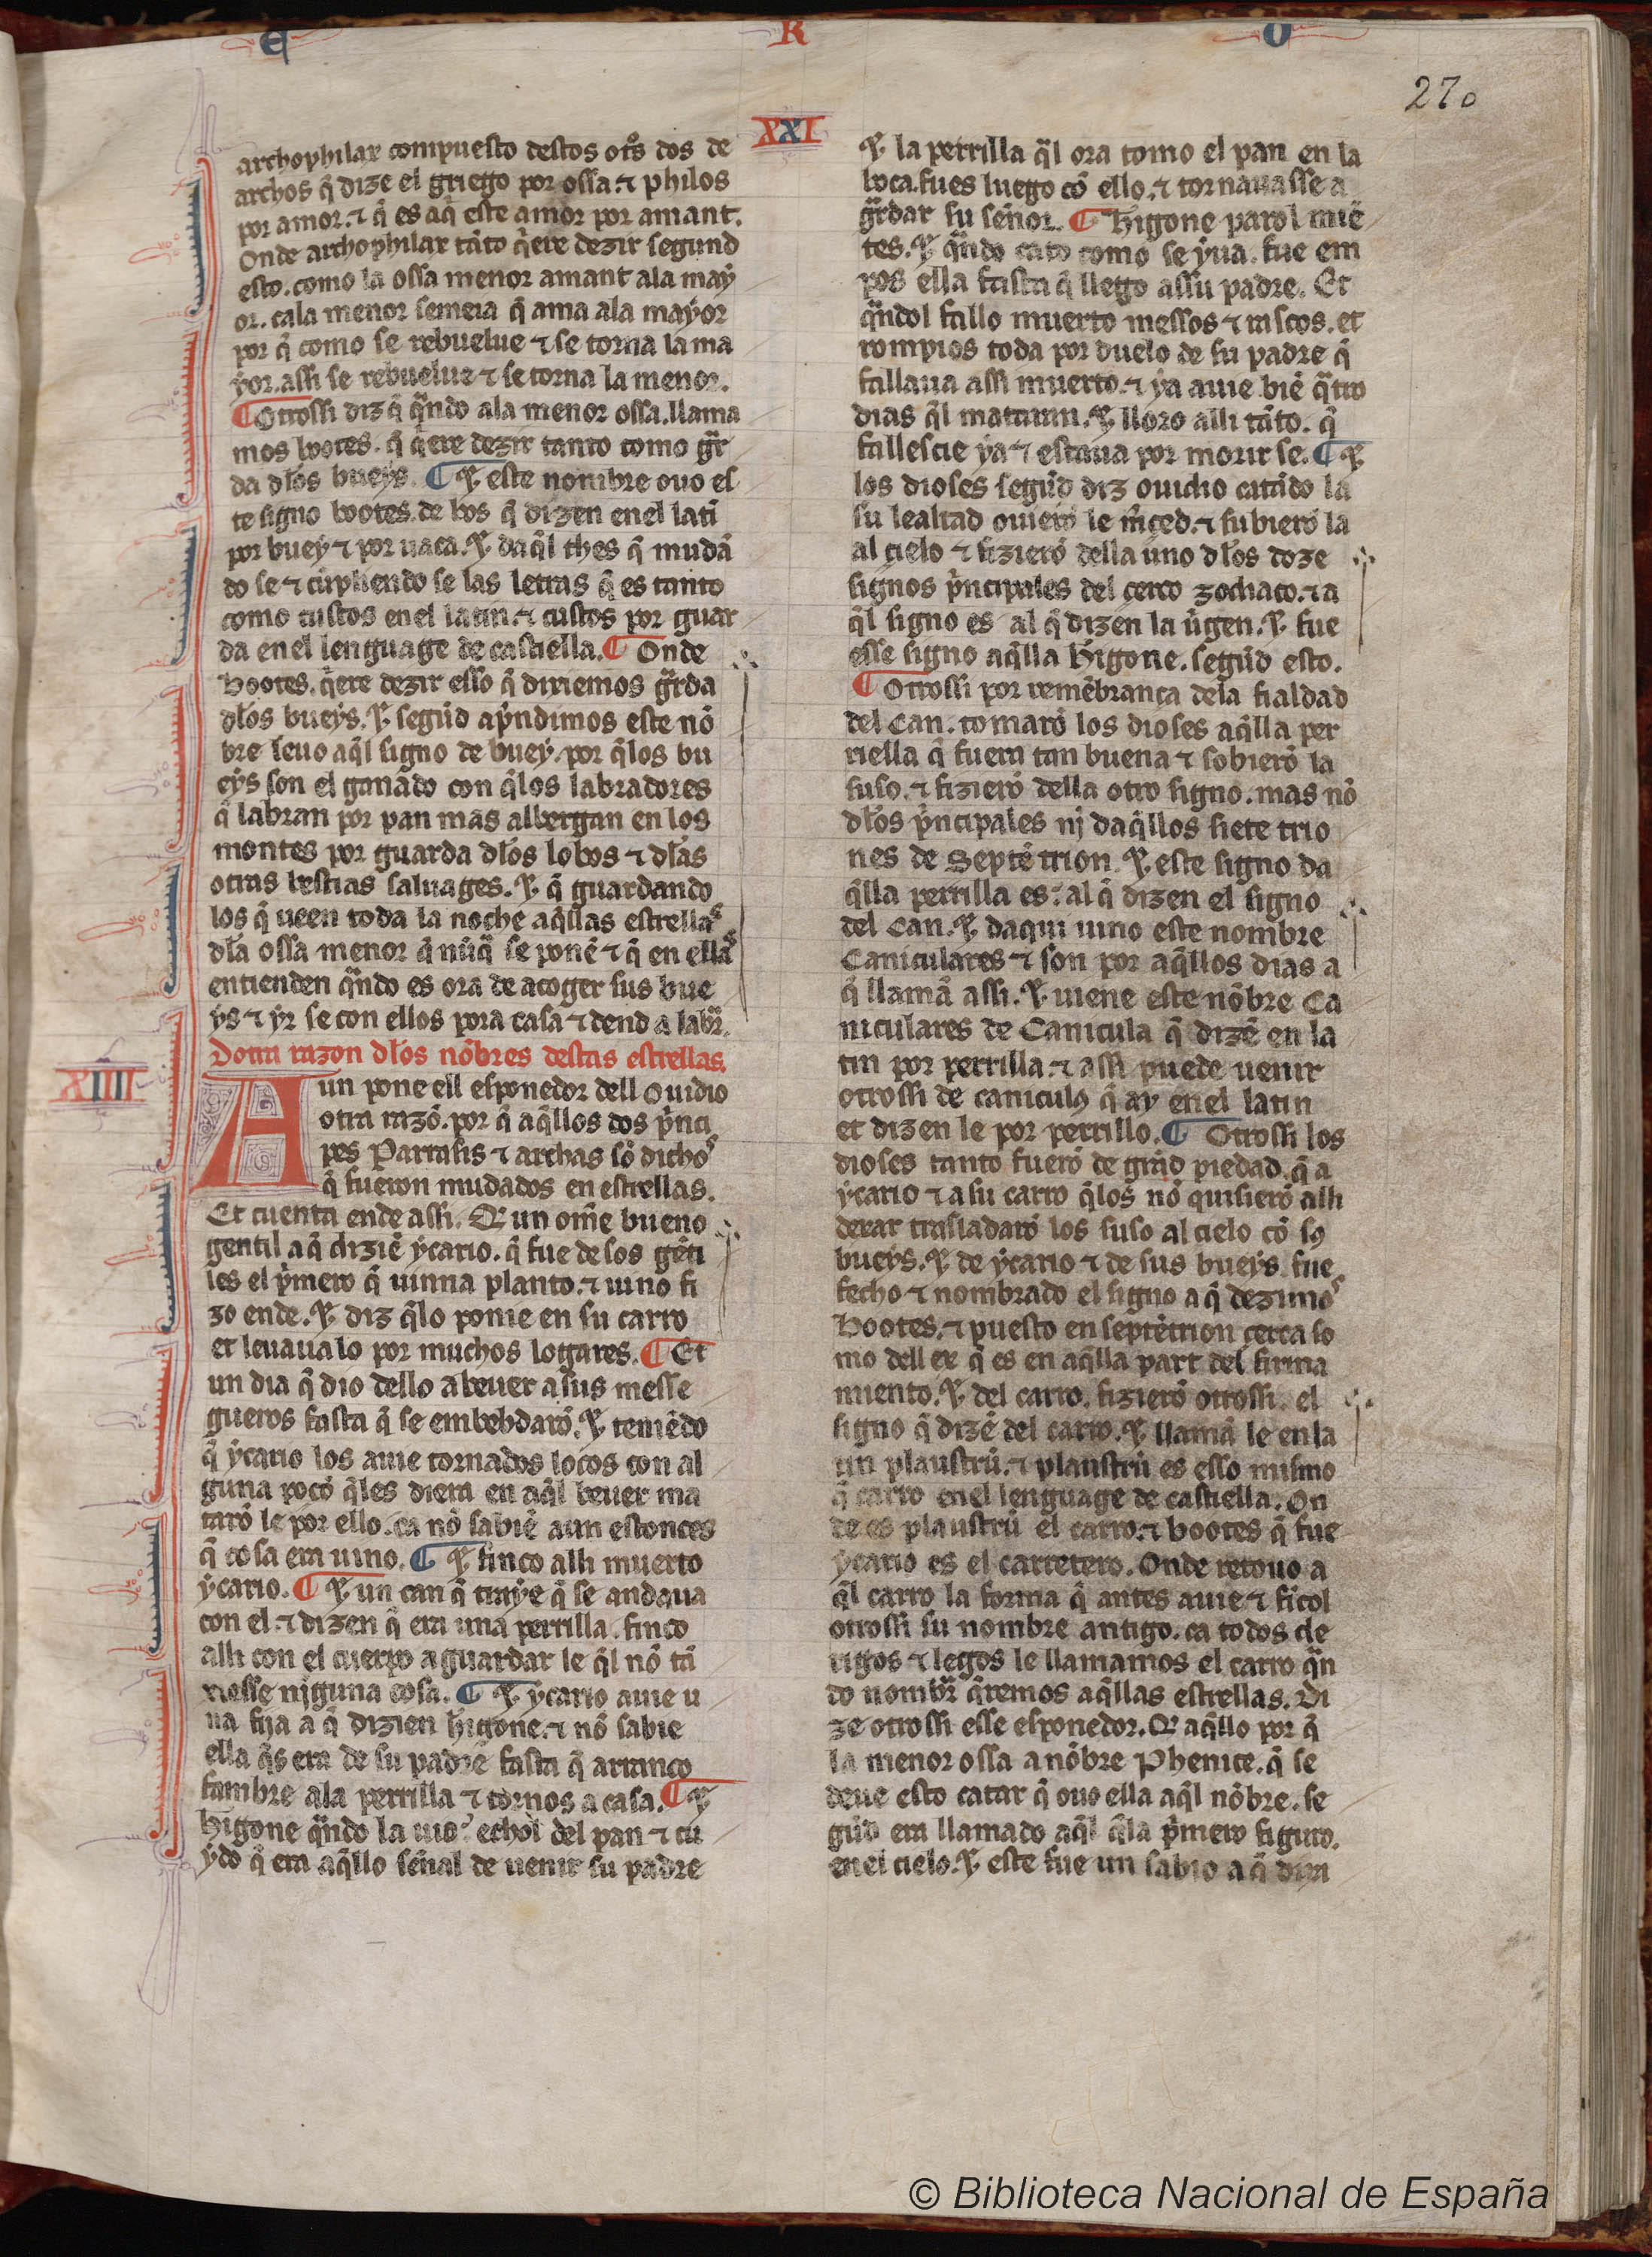 E R O
270
XXI
archophilax compuesto destos otͬs dos de
archos q̃ dize el griego por ossa. ⁊ philos
por amor. ⁊ q̃ es aq̃ este amor por amant.
Onde archophilax tãto q̃ere dezir segund
esto. como la ossa menor amant ala maẏ
or. cala menor semeia q̃ ama ala maẏor
por q̃ como se rebuelue ⁊ se torna la ma
ẏor. assi se rebuelue ⁊ se torna la menor.
¶ Otrossi diz q̃ q̃ndo ala menor ossa. llama
mos bootes. q̃ q̃ere dezir tanto como gr̃
da dłos bueẏs. ¶ ⁊ este nombre ouo es
te signo bootes. de bos q̃ dizen enel lati
por bueẏ ⁊ por uaca. ⁊ daq̃l thes q̃ mudã
do se ⁊ cũpliendo se las letras q̃ es tanto
como custos enel latin. ⁊ custos por guar
da enel lenguage de castiella. ¶ Onde
Bootes. q̃ere dezir esso q̃ diriemos gr̃da
dłos bueẏs. ⁊ segũd ap̃ndimos este nõ
bre leuo aq̃l signo de bueẏ. por q̃los bu
eẏs son el ganãdo con q̃los labradores
q̃ labran por pan mas albergan en los
montes por guarda dłos lobos ⁊ dłas
otras bestias saluages. ⁊ q̃ guardando
los q̃ ueen toda la noche aq̃llas estrellas
dła ossa menor q̃ nũq̃ se ponẽ ⁊ q̃ en ellas
entienden q̃ndo es ora de acoger sus bue
ẏs ⁊ ẏr se con ellos pora casa ⁊ dend a labr̃.
Dotra razon dłos nõbres destas estrellas.
XIIII
Aun pone ell esponedor dell Ouidio
otra razõ. por q̃ aq̃llos dos p̃nci
pes Parrasis ⁊ archas sõ dichos
q̃ fueron mudados en estrellas.
Et cuenta ende assi. Q̃ un om̃e bueno
gentil a q̃ diziẽ ẏcario. q̃ fue de los gẽti
les el p̃mero q̃ uinna planto. ⁊ uino fi
zo ende. ⁊ diz q̃lo ponie en su carro
et leuaualo por muchos logares. ¶ Et
un dia q̃ dio dello a beuer a sus messe
gueros fasta q̃ se embebdarõ. ⁊ temẽdo
q̃ ẏcario los auie tornados locos con al
guna poçõ q̃les diera en aq̃l beuer ma
tarõ le por ello. ca nõ sabiẽ aun estonces
q̃ cosa era uino. ¶ ⁊ finco alli muerto
ẏcario. ¶ ⁊ un can q̃ traẏe q̃ se andaua
con el. ⁊ dizen q̃ era una perrilla. finco
alli con el cuerpo a guardar le q̃l nõ tã
niesse nĩguna cosa. ¶ ⁊ ẏcario auie u
na fija a q̃ dizien Hi̇gone. ⁊ nõ sabie
ella q̃s era de su padre fasta q̃ arranco
fambre ala perrilla ⁊ tornos a casa. ¶ ⁊
Higone q̃ndo la uio. echol del pan ⁊ cu
ẏdo q̃ era aq̃llo señal de uenir su padre
⁊ la perrilla q̃l ora tomo el pan en la
boca. fues luego cõ ello. ⁊ tornauasse a
gr̃dar su señor. ¶ Higone parol miẽ
tes. ⁊ q̃ndo cato como se ẏua. fue em
pos ella fasta q̃ llego assu padre. Et
q̃ndol fallo muerto messos ⁊ rascos. et
rompios toda por duelo de su padre q̃
fallaua assi muerto. ⁊ ẏa auie biẽ q̃tro
dias q̃l mataran. ⁊ lloro alli tãto. q̃
fallescie ẏa ⁊ estaua por morir se. ¶ ⁊
los dioses segũd diz ouidio catãdo la
su lealtad ouierõ le m̃ced. ⁊ subierõ la
al cielo ⁊ fizierõ della uno dłos doze
signos p̃ncipales del çerco zodiaco. ⁊ a
q̃l signo es al q̃ dizen la ũgen. ⁊ fue
esse signo aq̃lla Higone. segũd esto.
¶ Otrossi por remẽbrança dela fialdad
del Can. tomarõ los dioses aq̃lla per
riella q̃ fuera tan buena ⁊ sobierõ la
suso. ⁊ fizierõ della otro signo. mas nõ
dłos p̃ncipales nj daq̃llos siete trio
nes de Septẽtrion. ⁊ este signo da
q̃lla perrilla es. al q̃ dizen el signo
del Can. ⁊ daqui uino este nombre
Caniculares ⁊ son por aq̃llos dias a
q̃ llamã assi. ⁊ uiene este nõbre Ca
niculares de Canicula q̃ dizẽ en la
tin por perrilla. ⁊ assi puede uenir
otrossi de caniculꝯ q̃ aẏ enel latin
et dizen le por perrillo. ¶ Otrossi los
dioses tanto fuerõ de grãd piedad. q̃ a
ẏcario ⁊ a su carro q̃los nõ quisierõ alli
dexar trasladarõ los suso al cielo cõ sꝯ
bueẏs. ⁊ de ẏcario ⁊ de sus bueẏs fue
fecho ⁊ nombrado el signo a q̃ dezimos
Bootes. ⁊ puesto en septẽtrion çerca so
mo dell ex q̃ es en aq̃lla part del firma
miento. ⁊ del carro. fizierõ otrossi. el
signo q̃ dizẽ del carro. ⁊ llamã le en la
tin plaustrũ. ⁊ plaustrũ es esso mismo
q̃ carro enel lenguage de castiella. On
de es plaustrũ el carro. ⁊ bootes q̃ fue
ẏcario es el carretero. Onde retouo a
q̃l carro la forma q̃ antes auie ⁊ ficol
otrossi su nombre antigo. ca todos cle
rigos ⁊ legos le llamamos el carro q̃n
do nombr̃ q̃remos aq̃llas estrellas. Di
ze otrossi esse esponedor. Q̃ aq̃llo por q̃
la menor ossa a nõbre Phenice. q̃ se
deue esto catar q̃ ouo ella aq̃l nõbre. se
gũd era llamado aq̃l q̃la p̃mero figuro.
enel cielo. ⁊ este fue un sabio a q̃ dixi
© Biblioteca Nacional de España